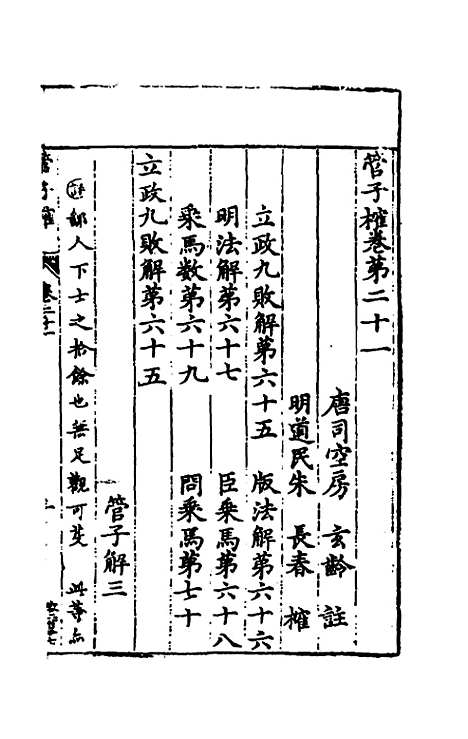 管子榷卷第二十一
唐司空房 玄齡 註
明道民朱 長春 榷
立政九敗解第六十五 版法解第六十六
明法解第六十七 臣乘馬第六十八
乘馬數第六十九 問乘馬第七十
管子解三
立政九敗解第六十五
鄙人下士之拾餘也無足觀可芟 此等点
管子榷 卷二十一